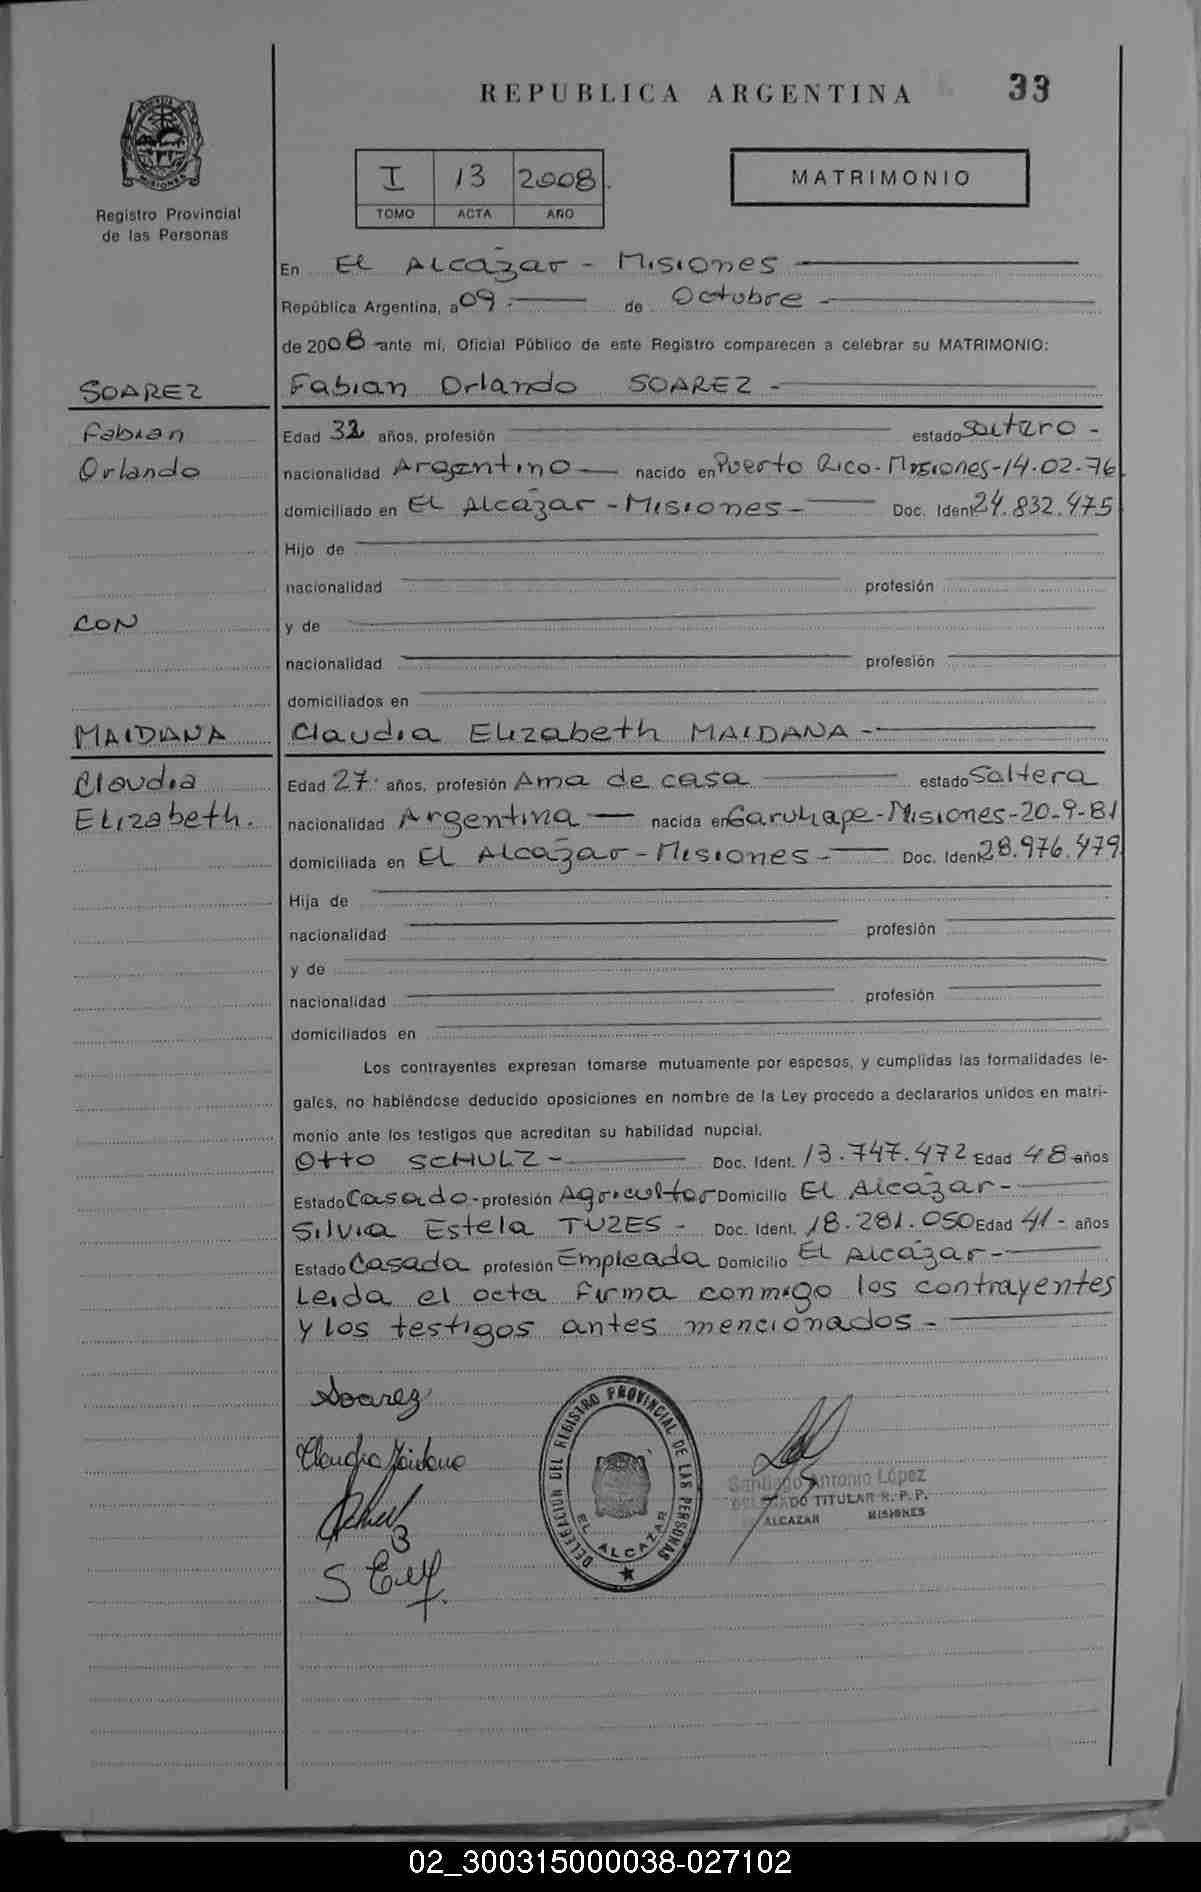 REPUBLICA ARGENTINA 33
I 13 2008.
TOMO ACTA AÑO
MATRIMONIO
Registro Provincial
de las Personas
En El Alcázar - Misiones
República Argentina, a 09 de Octubre -
de 2008 ante mí, Oficial Público de este Registro comparecen a celebrar su MATRIMONIO:
SOAREZ
Fabian Orlando SOAREZ -
Fabian
Orlando
Edad 32 años, profesión estado Soltero -
nacionalidad Argentino nacido en Puerto Rico - Misiones - 14.02.76
domiciliado en El Alcázar - Misiones - Doc. Ident. 24.832.475
Hijo de
nacionalidad profesión
CON
y de
nacionalidad profesión
domiciliados en
MAIDANA
Claudia Elizabeth MAIDANA -
Claudia
Elizabeth.
Edad 27 años, profesión Ama de casa estado Soltera
nacionalidad Argentina nacida en Garuhape - Misiones - 20-9-81
domiciliada en El Alcázar - Misiones - Doc. Ident. 28.976.479
Hija de
nacionalidad profesión
y de
nacionalidad profesión
domiciliados en
Los contrayentes expresan tomarse mutuamente por esposos, y cumplidas las formalidades le-
gales, no habiéndose deducido oposiciones en nombre de la Ley procedo a declararlos unidos en matri-
monio ante los testigos que acreditan su habilidad nupcial.
Otto SCHULZ - Doc. Ident. 13.747.472 Edad 48 años
Estado Casado - profesión Agricultor Domicilio El Alcázar -
Silvia Estela TUZES - Doc. Ident. 18.281.050 Edad 41 - años
Estado Casada profesión Empleada Domicilio El Alcázar -
Leida el acta firma conmigo los contrayentes
y los testigos antes mencionados -
Soarez
Claudia Maidana
DELEGACION DEL REGISTRO PROVINCIAL DE LAS PERSONAS
EL ALCAZAR
Santiago Antonio López
DELEGADO TITULAR R. P. P.
ALCAZAR MISIONES
02_300315000038-027102